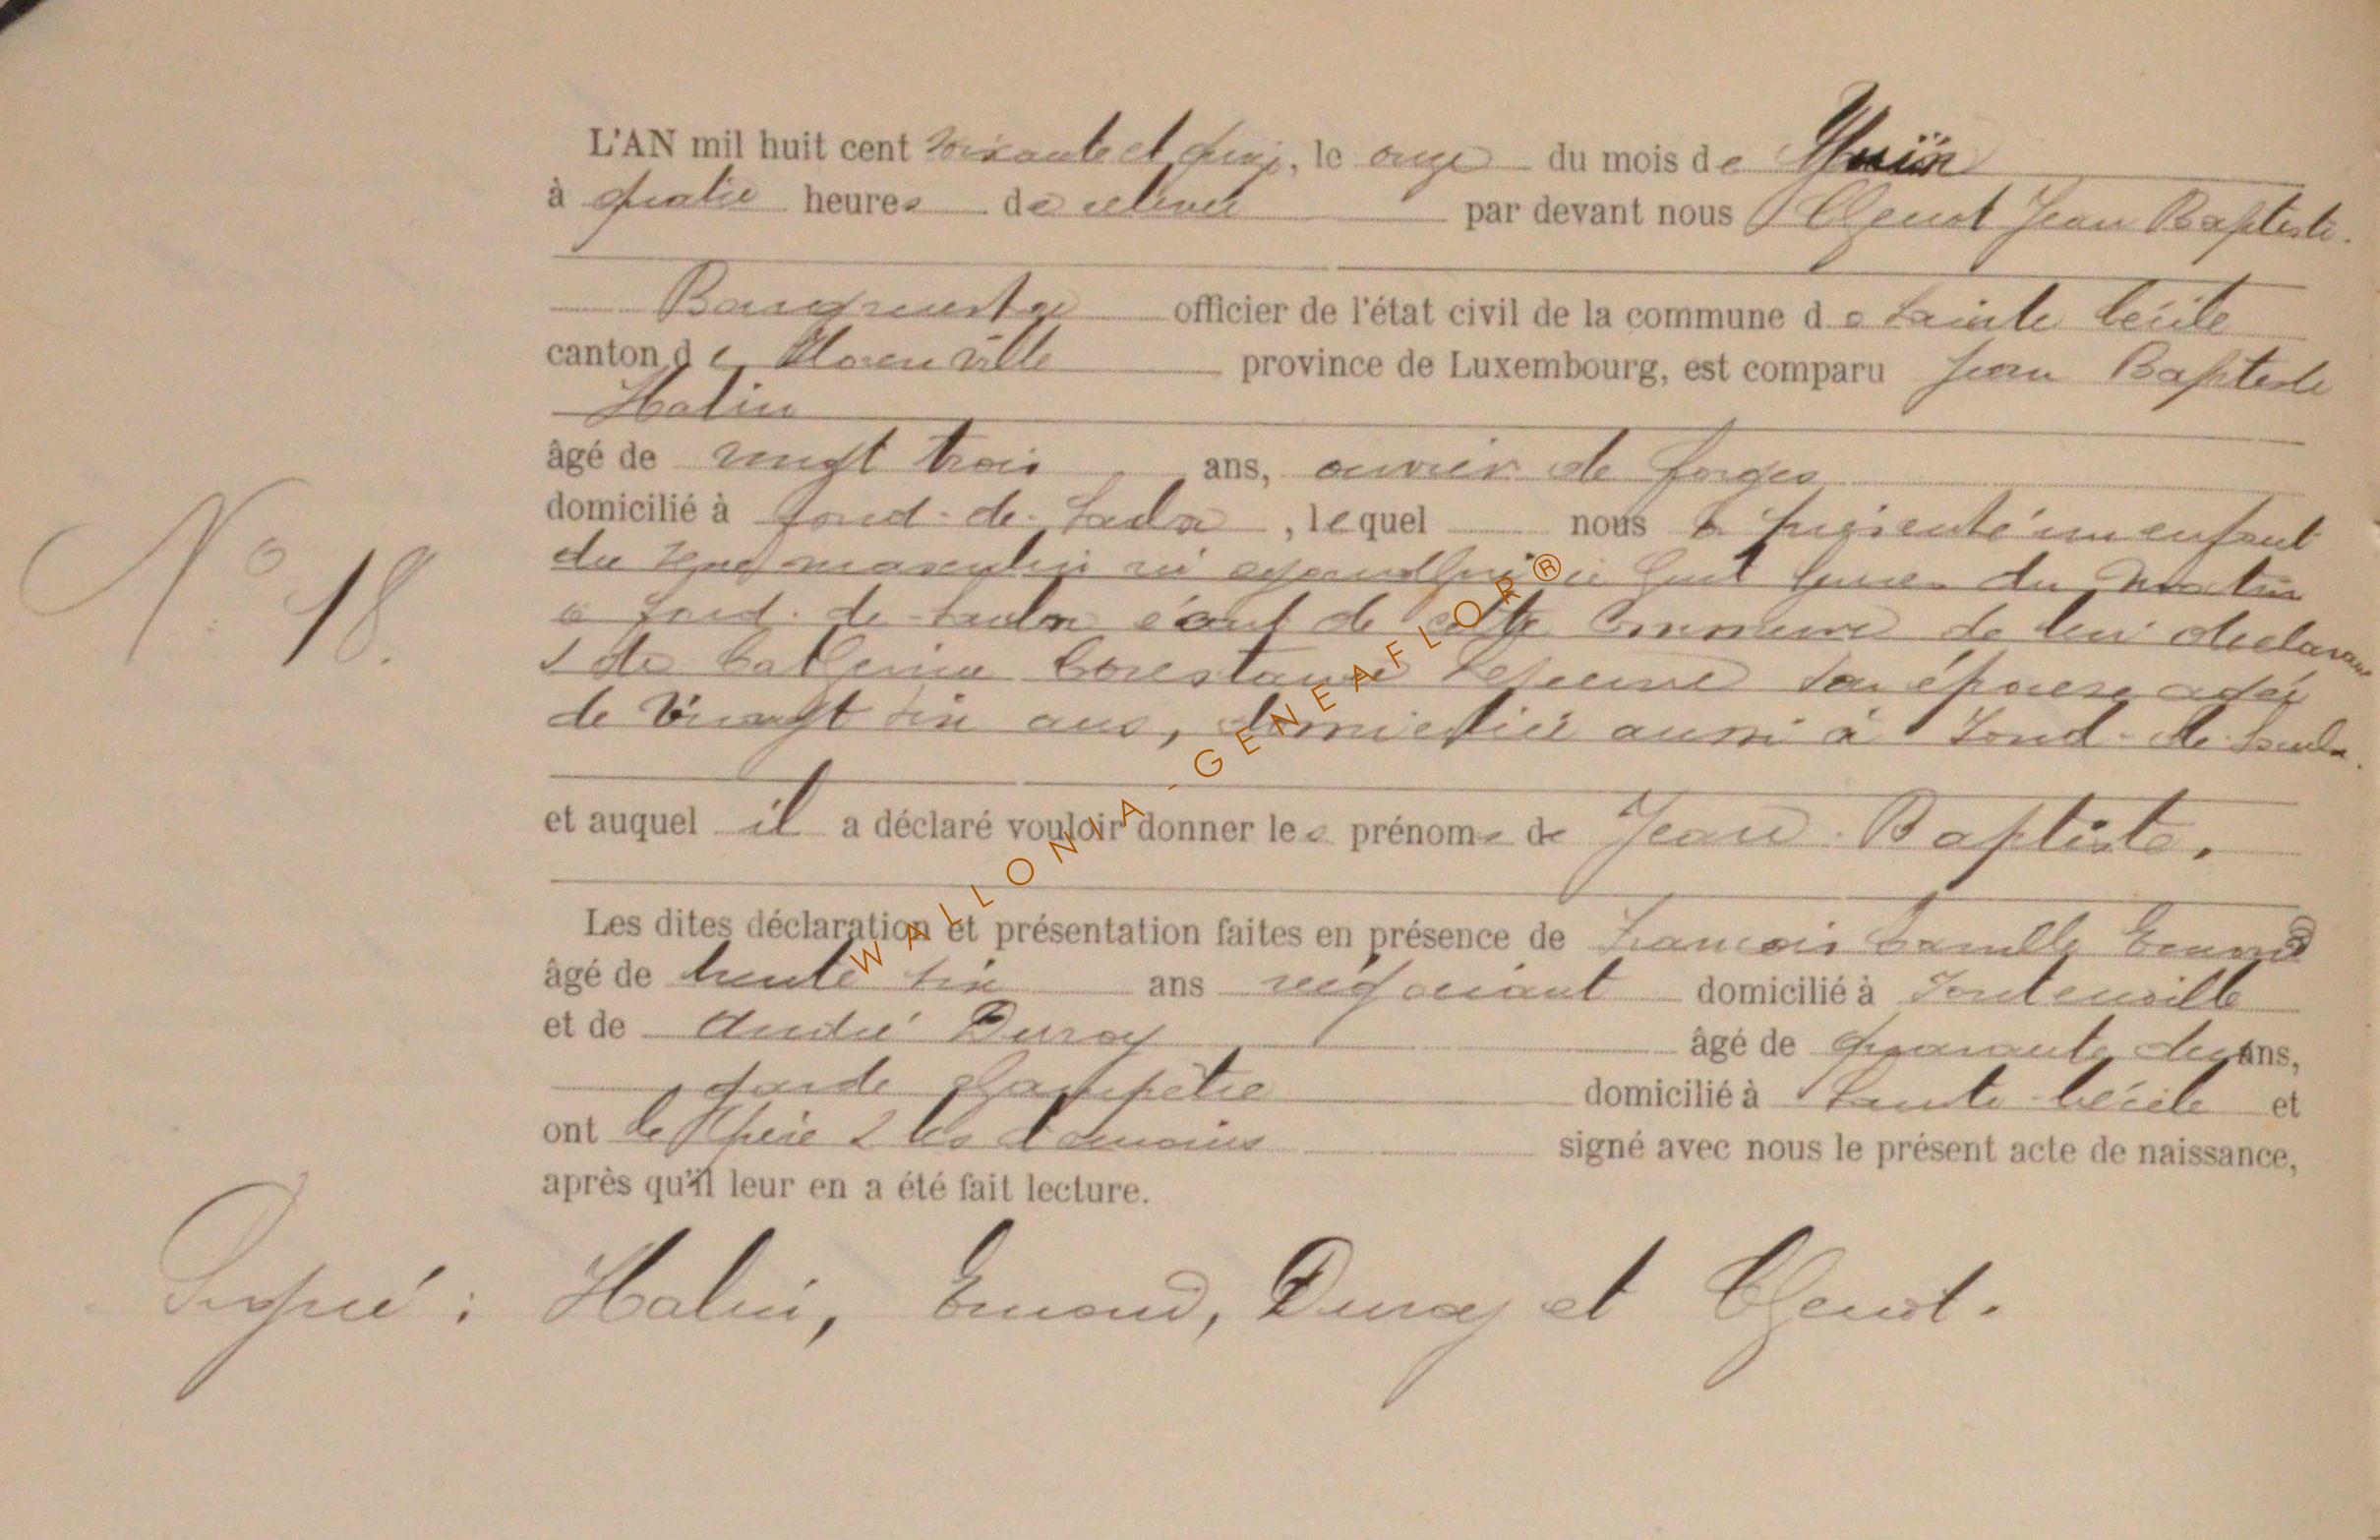 L'AN mil huit cent soixante et quinze, le onze du mois de Juin
à quatre heures de relevée par devant nous Thenot Jean Baptiste.
Bourgmestre officier de l'état civil de la commune de Sainte Cécile
canton de Florenville province de Luxembourg, est comparu Jean Baptiste
Halin
âgé de vingt trois ans, ouvrier de forges
domicilié à fond-de-, lequel nous a présenté un enfant
du sexe masculin né aujourd'hui à huit heures du matin
à fond-de- de cette Commune de lui déclarant
& de Catherine Constance Lejeune son épouse agée
de Vingt six ans, domiciliée aussi à Fond-de-
et auquel il a déclaré vouloir donner les prénoms de Jean Baptiste.
Les dites déclaration et présentation faites en présence de François Camille Emond
âgé de trente six ans négociant domicilié à Fontenoille
et de André Duroy âgé de quarante deux ans,
garde champêtre domicilié à Sainte Cécile et
ont le père & les témoins signé avec nous le présent acte de naissance,
après qu'il leur en a été fait lecture.
N° 18.
Signé : Halin, Emond, Duroy et Thenot.
WALLONIA-GENEAFLOR®